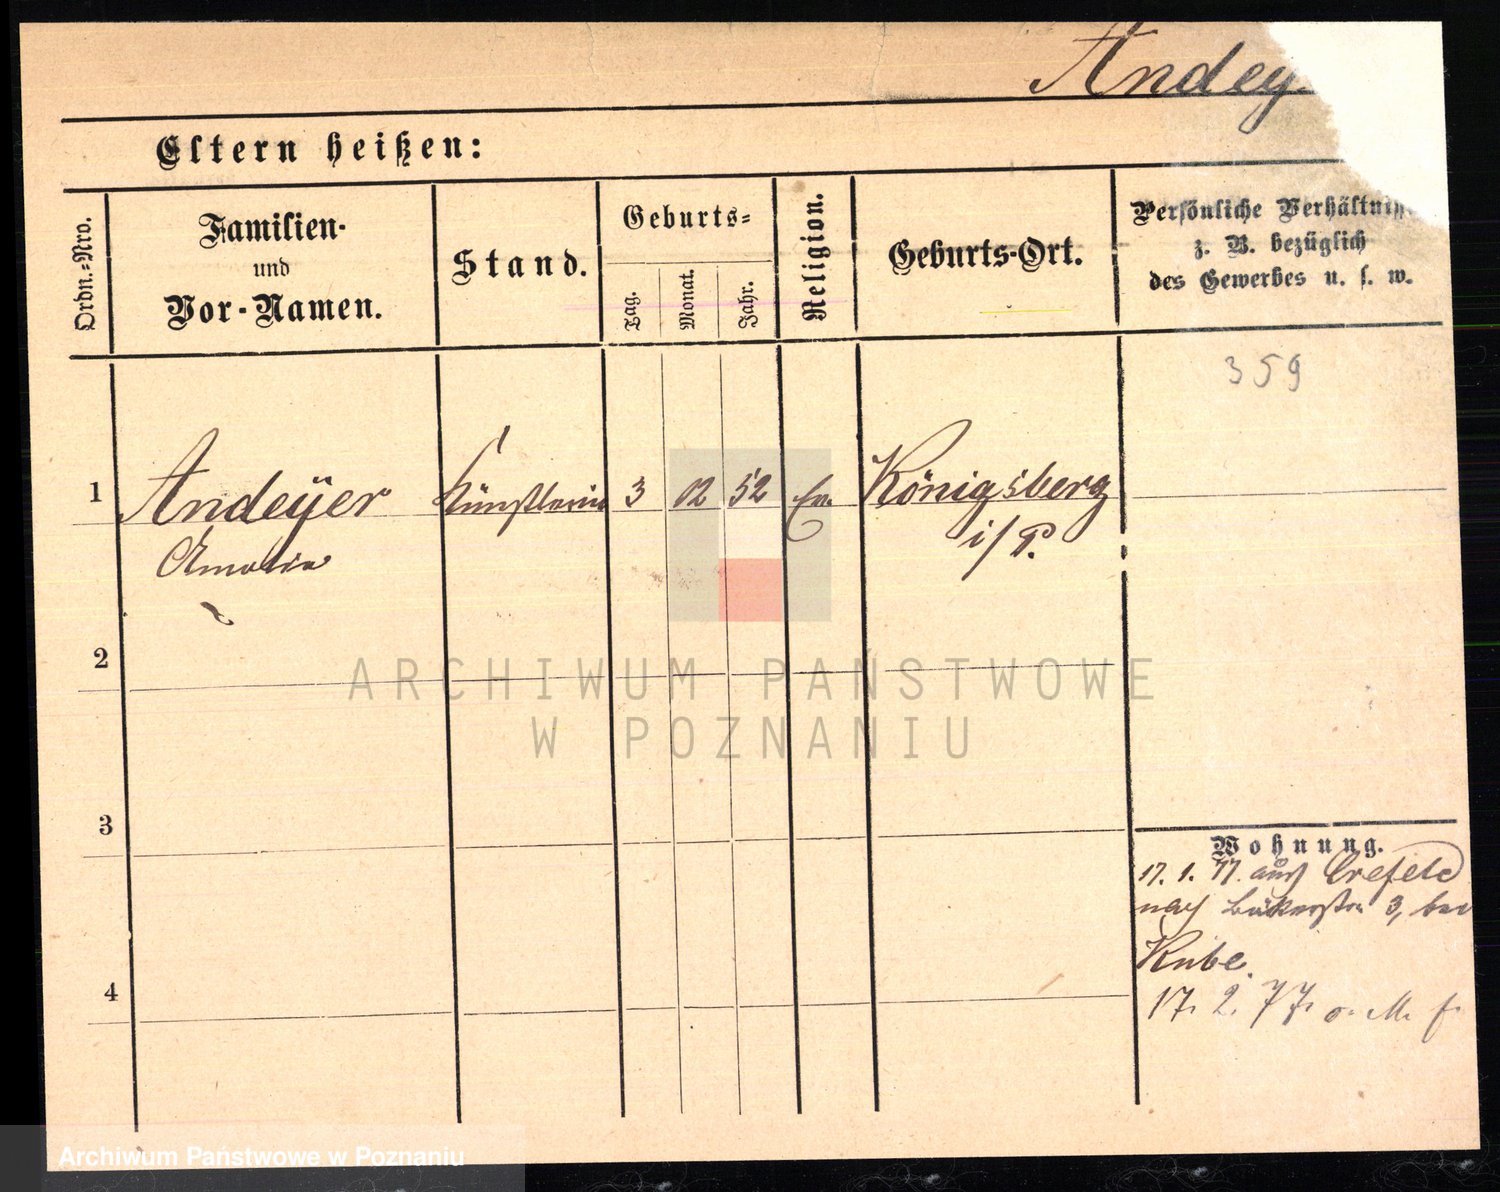 Andey
Eltern heißen:
Ordn.-Nro.
Familien-
und
Vor-Namen.
Stand.
Geburts-
Tag.
Monat.
Jahr.
Religion.
Geburts-Ort.
Persönliche Verhältniss
z. B. bezüglich
des Gewerbes u. s. w.
359
1 Andeyer Künstlerin 3 02 52 Ev. Königsberg
Amalie i/P.
2
3
4
Wohnung.
17. 1. 77. aus Crefeld
nach Bäkerstr. 3, bei
Kube.
17. 2. 77. o. M. f.
ARCHIWUM PAŃSTWOWE
W POZNANIU
Archiwum Państwowe w Poznaniu